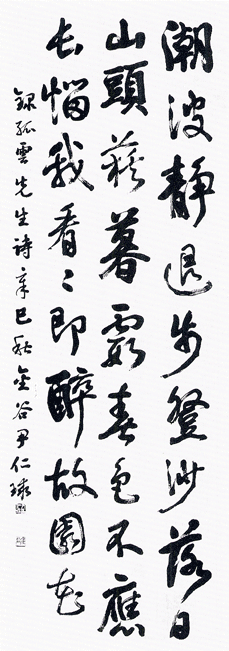 潮波靜退步登沙落日
山頭簇暮霞春色不應
長惱我看〻即醉故園花
錄孤雲先生詩辛巳秋金谷尹仁球